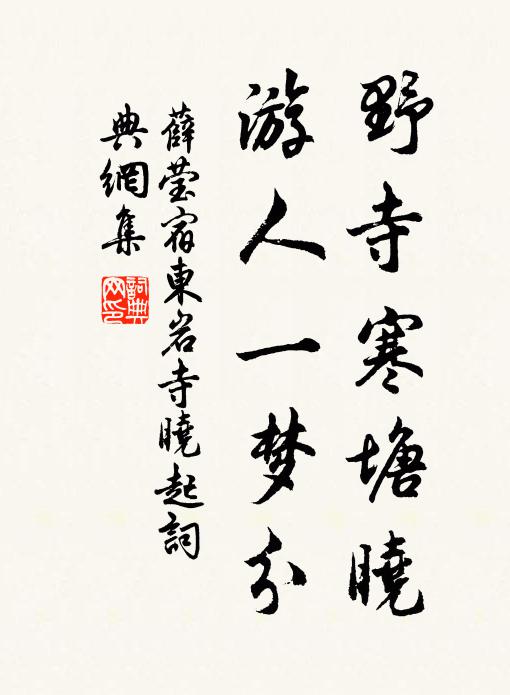 野寺寒塘曉
游人一梦分
薛瑩宿東岩寺曉起詞
典網集
詞典
网印